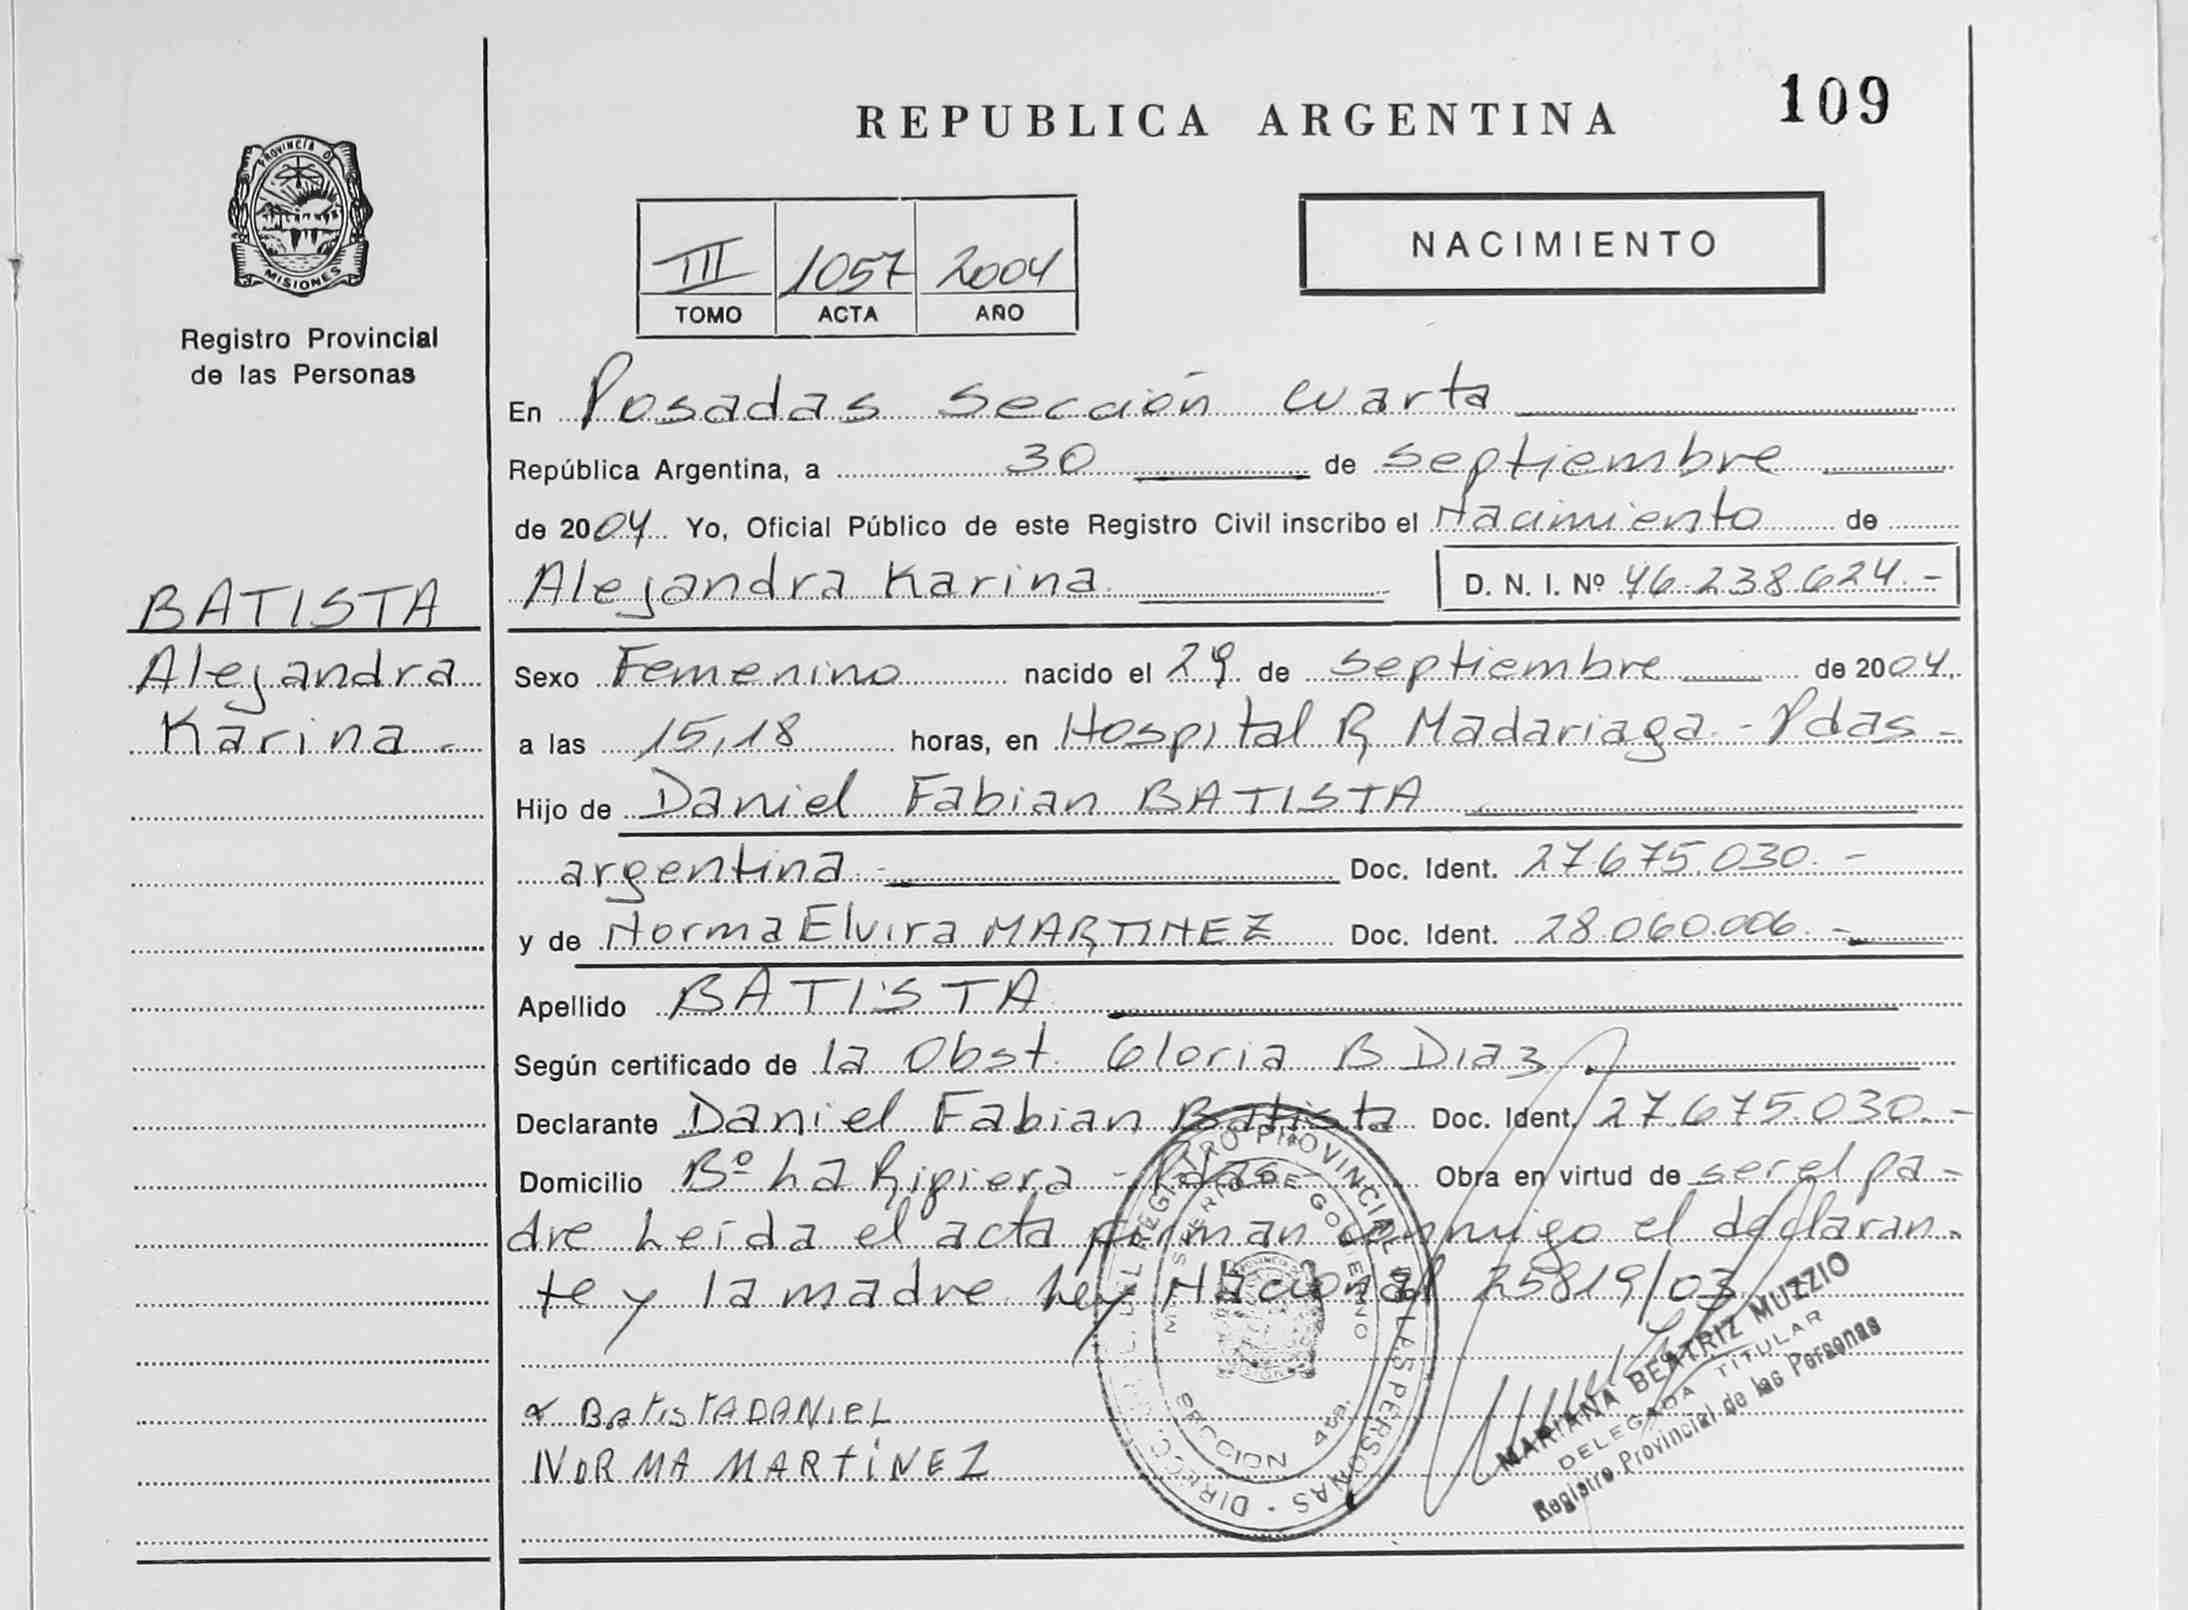 REPUBLICA ARGENTINA
109
PROVINCIA DE
MISIONES
Registro Provincial
de las Personas
III 1057 2004
TOMO ACTA AÑO
NACIMIENTO
En Posadas sección cuarta
República Argentina, a 30 de septiembre
de 2004 Yo, Oficial Público de este Registro Civil inscribo el Nacimiento de
Alejandra Karina D. N. I. Nº 46.238.624.-
BATISTA
Alejandra
Karina.-
Sexo Femenino nacido el 29 de septiembre de 2004.
a las 15,18 horas, en Hospital R Madariaga.- Pdas-
Hijo de Daniel Fabian BATISTA
argentina.- Doc. Ident. 27.675.030.-
y de Norma Elvira MARTINEZ Doc. Ident. 28.060.006.-
Apellido BATISTA
Según certificado de la Obst. Gloria B Diaz
Declarante Daniel Fabian Batista Doc. Ident. 27.675.030.-
Domicilio Bº La Ripiera - Pdas- Obra en virtud de ser el pa-
dre Leida el acta firman conmigo el declaran-
te y la madre Ley Nacional 25819/03
Batista DANIEL
NORMA MARTiNEZ
REGISTRO PROVINCIAL DE LAS PERSONAS
MINISTERIO DE GOBIERNO
SECCION 4ta.
MARIANA BEATRIZ MUZZIO
DELEGADA TITULAR
Registro Provincial de las Personas